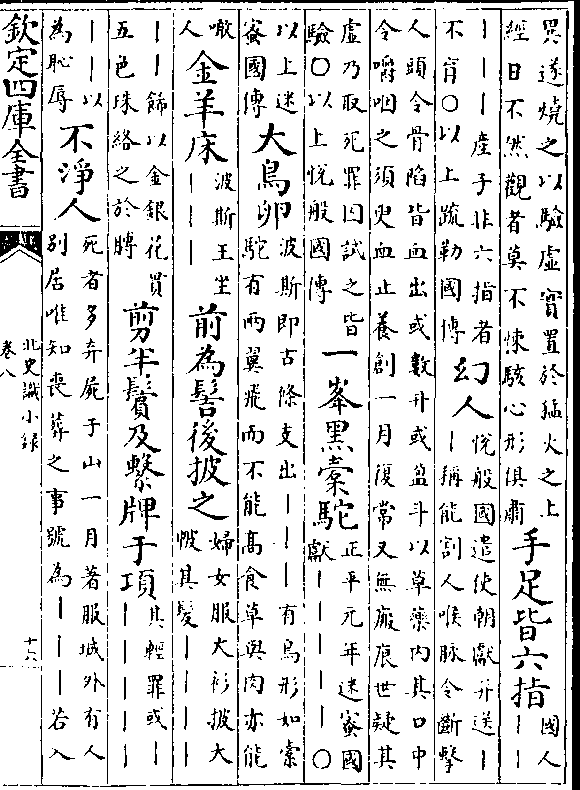 異遂燒之以驗虛實置於猛火之上
經日不然觀者莫不悚駭心形俱肅
手足皆六指
國人
丨丨
丨丨丨產子非六指者
不育〇以上疏勒國傳
幻人
悅般國遣使朝獻并送丨
丨稱能割人喉脉令斷擊
人頭令骨陷皆血出或數升或盈斗以草藥內其口中
令嚼咽之須臾血止養創一月復常又無瘢痕世疑其
虛乃取死罪囚試之皆
驗〇以上悅般國傳
一峯黑槖駝
正平元年迷蜜國
獻丨丨丨丨丨〇
以上迷
蜜國傳
大鳥卵
波斯即古條支出丨丨丨有鳥形如槖
駝有兩翼飛而不能高食草與肉亦能
噉
人
金羊床
波斯王坐
丨丨丨
前為髻後披之
婦女服大衫披大
帔其髮丨丨丨丨
丨丨飾以金銀花貫
五色珠絡之於膊
剪半鬢及繫牌于項
其輕罪或丨
丨丨丨丨丨丨
丨丨以
為恥辱
不淨人
死者多弃屍于山一月著服城外有人
别居唯知喪葬之事號為丨丨丨若入
欽定四庫全書
北史識小録
卷八
十六